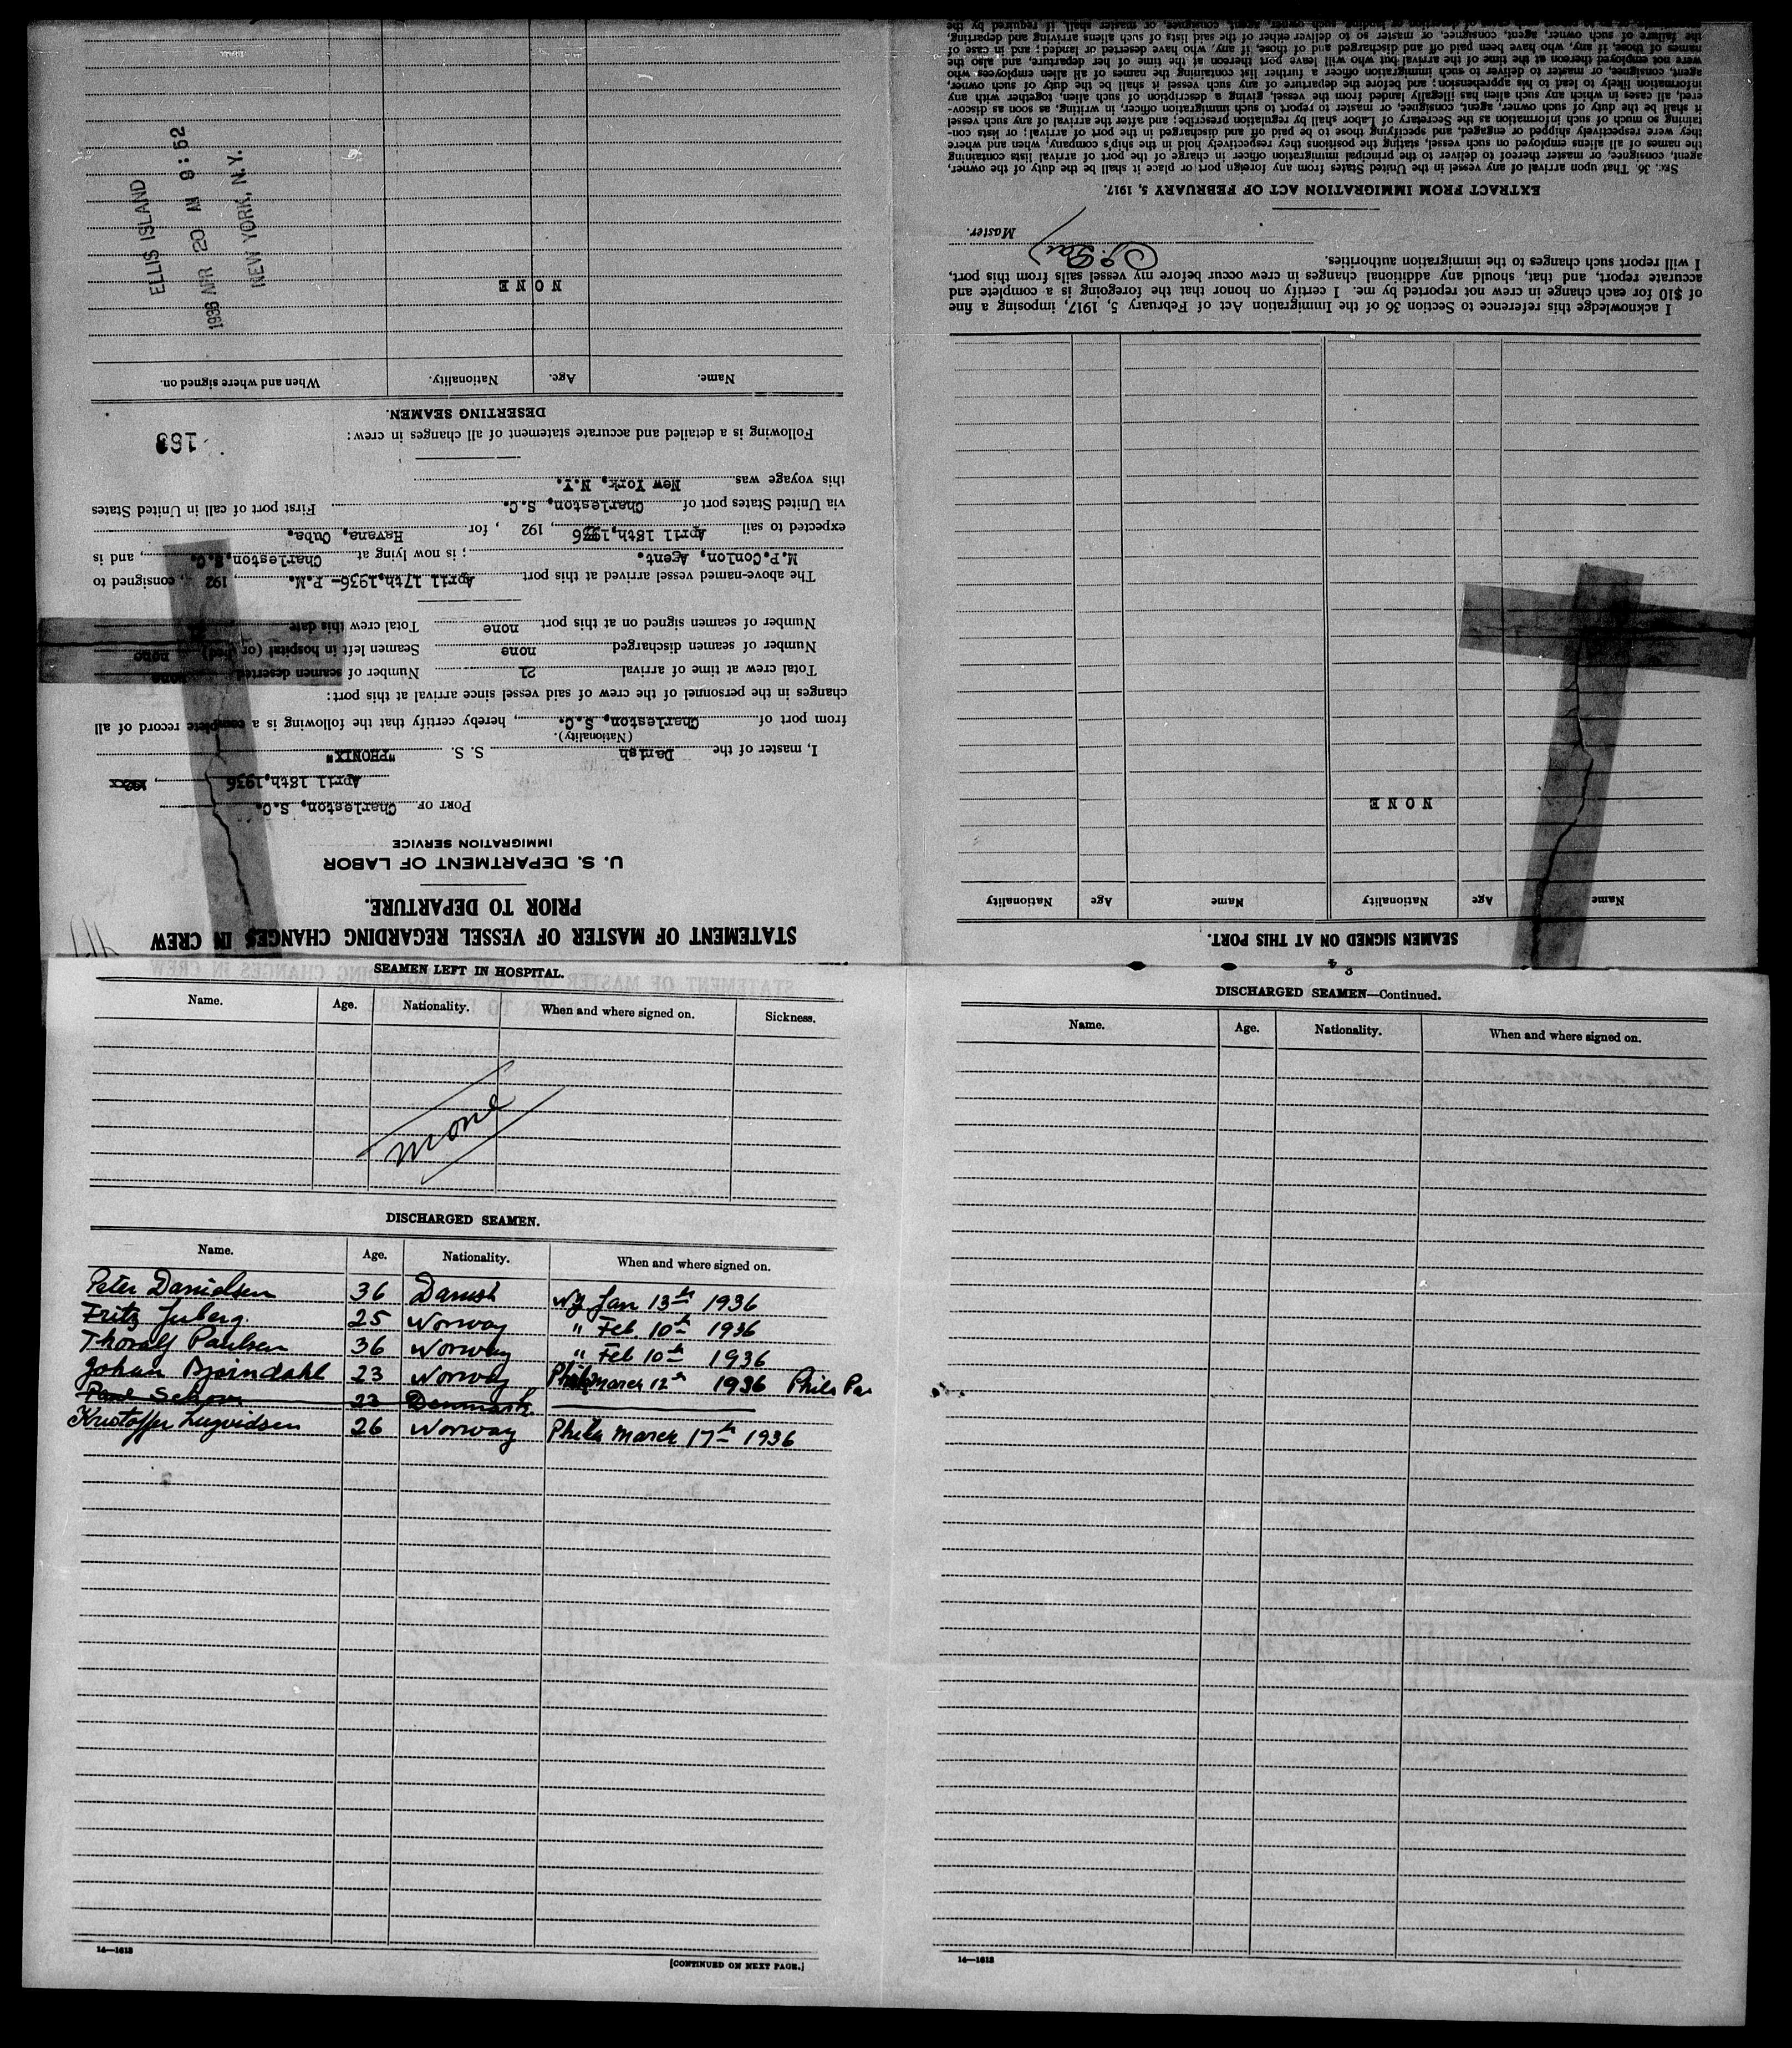 STATEMENT OF MASTER OF VESSEL REGARDING CHANGES IN CREW
PRIOR TO DEPARTURE.
U. S. DEPARTMENT OF LABOR
IMMIGRATION SERVICE
PORT OF Charleston, S.C.
April 18th,1936, 192xx
I, master of the Danish S. S. "PHONIX"
(Nationality).
from port of Charleston, S.C., hereby certify that the following is a complete record of all
changes in the personnel of the crew of said vessel since arrival at this port:
Total crew at time of arrival 21 Number of seamen deserted none
Number of seamen discharged none Seamen left in hospital (or died) none
Number of seamen signed on at this port none Total crew this date
The above-named vessel arrived at this port April 17th,1936- P.M., 192 , consigned to
M.P.Conlon, Agent. ; is now lying at Charleston,S.C., and is
expected to sail April 18th,1936, 192 , for Havana, Cuba.
via United States port of Charleston, S.C. First port of call in United States
this voyage was New York, N.Y.
Following is a detailed and accurate statement of all changes in crew:
163
DESERTING SEAMEN.
Name. Age. Nationality. When and where signed on.
NONE
ELLIS ISLAND
1936 APR 20 AM 9:52
NEW YORK, N.Y.
SEAMEN SIGNED ON AT THIS PORT.
Name Age Nationality Name Age Nationality
NONE
I acknowledge this reference to Section 36 of the Immigration Act of February 5, 1917, imposing a fine
of $10 for each change in crew not reported by me. I certify on honor that the foregoing is a complete and
accurate report, and that, should any additional changes in crew occur before my vessel sails from this port,
I will report such changes to the immigration authorities.
Master.
EXTRACT FROM IMMIGRATION ACT OF FEBRUARY 5, 1917.
SEC. 36. That upon arrival of any vessel in the United States from any foreign port or place it shall be the duty of the owner,
agent, consignee, or master thereof to deliver to the principal immigration officer in charge of the port of arrival lists containing
the names of all aliens employed on such vessel, stating the positions they respectively hold in the ship's company, when and where
they were respectively shipped or engaged, and specifying those to be paid off and discharged in the port of arrival; or lists con-
taining so much of such information as the Secretary of Labor shall by regulation prescribe; and after the arrival of any such vessel
it shall be the duty of such owner, agent, consignee, or master to report to such immigration officer, in writing, as soon as discov-
ered, all cases in which any such alien has illegally landed from the vessel, giving a description of such alien, together with any
information likely to lead to his apprehension; and before the departure of any such vessel it shall be the duty of such owner,
agent, consignee, or master to deliver to such immigration officer a further list containing the names of all alien employees who
were not employed thereon at the time of the arrival but who will leave port thereon at the time of her departure, and also the
names of those, if any, who have been paid off and discharged and of those, if any, who have deserted or landed; and in case of
the failure of such owner, agent, consignee, or master so to deliver either of the said lists of such aliens arriving and departing,
SEAMEN LEFT IN HOSPITAL.
Name. Age. Nationality. When and where signed on. Sickness.
none
DISCHARGED SEAMEN.
Name. Age. Nationality. When and where signed on.
Peter Danielsen 36 Danish NY Jan 13th 1936
Fritz Juberg. 25 Norway " Feb. 10th 1936
Thoralf Paulsen 36 Norway " Feb 10th 1936
Johan Bjørndahl 23 Norway Phila March 12th 1936 Phila Pa
Paul Schou 23 Denmark.
Kristoffer 26 Norway Phila March 17th 1936
14—1613
[CONTINUED ON NEXT PAGE.]
DISCHARGED SEAMEN—Continued.
Name. Age. Nationality. When and where signed on.
14—1613